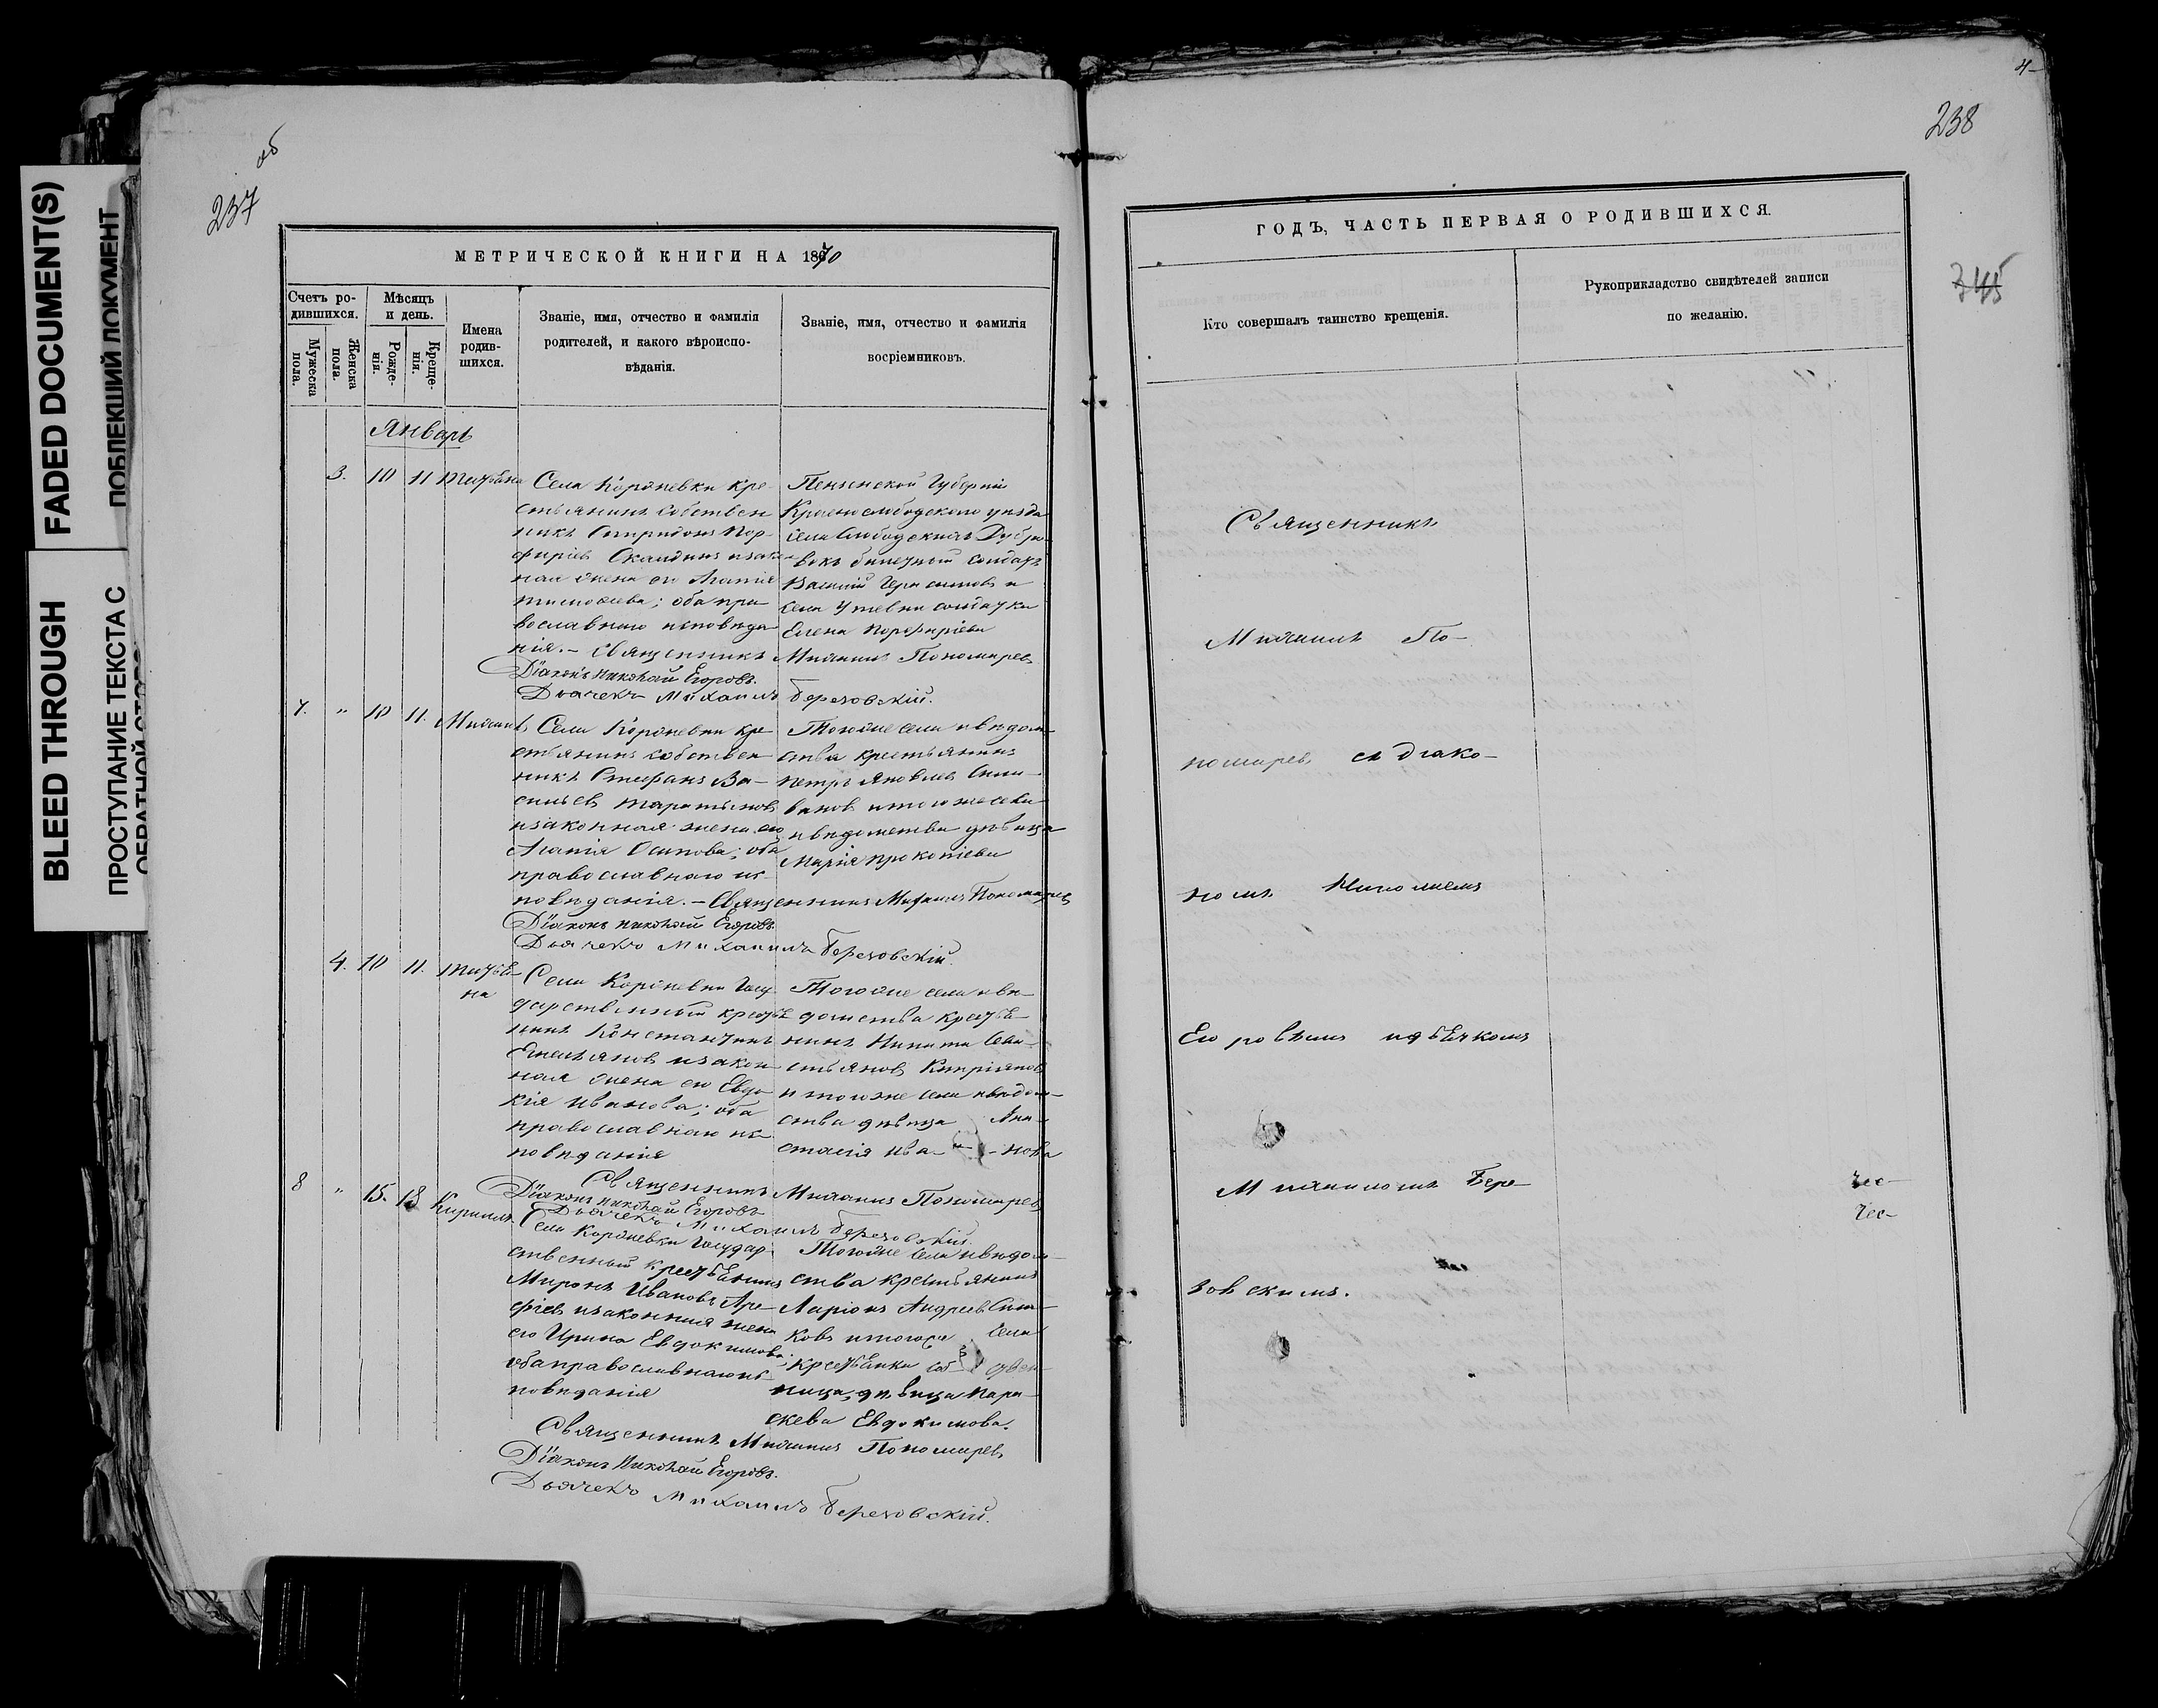 FADED DOCUMENT(S)
ПОБЛЕКШИЙ ДОКУМЕНТ
BLEED THROUGH
ПРОСТУПАНИЕ ТЕКСТА С
ОБРАТНОЙ
об
237
МЕТРИЧЕСКОЙ КНИГИ НА 1870
Счетъ ро-
дившихся.
Мужеска
пола.
Женска
пола.
Мѣсяцъ
и день.
Рожде-
нія.
Креще-
нія.
Имена
родив-
шихся.
Званіе, имя, отчество и фамилія
родителей, и какого вѣроиспо-
вѣданія.
Званіе, имя, отчество и фамилія
восріемниковъ.
Январь
3. 10 11 Татьяна
Села Кордневки кре-
стьянинъ собствен
никъ Спиридонъ Пор-
фиріевъ изакон
ная жена его Агапія
Тимофеева; обапра-
вославнаго исповѣда
нія. - Священникъ Михаилъ Пономаревъ
Діаконъ Николай Егоровъ.
Дьячекъ Михаилъ Березовскій.
Пензенской Губерніи
Краснослободскаго уѣзда
села Слободскихъ Дубро-
вокъ солдатъ
Василій Герасимовъ и
села солдатка
Елена Порфиріева
7. " 10 11. Михаилъ
Села Кордневки кре
стьянинъ собствен
никъ Стефанъ Ва-
сильевъ
изаконная жена его
Агапія Осипова; оба
православнаго ис-
повѣданія. - Священникъ Михаилъ Пономаревъ
Діаконъ Николай Егоровъ
Дьячекъ Михаилъ Березовскій.
Тогоже села ивѣдом-
ства крестьянинъ
Петръ Яковлевъ
итогоже села
ивѣдомства дѣвица
Марія Прокопіева
4. 10 11. Татья-
на
Села Кордневки Госу-
дарственный крестья
нинъ Константинъ
Емельяновъ изакон
ная жена его Евдо-
кія Иванова; оба
православнаго ис-
повѣданія
Тогоже села ивѣ-
домства крестья-
нинъ Никита Сева-
стьяновъ Кипріяновъ
итогоже села ивѣдом-
ства дѣвица Ана-
стасія Ива- - нова
Священникъ Михаилъ Пономаревъ
Діаконъ Николай Егоровъ
Дьячекъ Михаилъ Березовскій.
8 " 15. 18 Кириллъ
Села Кордневки Государ-
ственный крестьянинъ
Миронъ Ивановъ Аре-
фіевъ изаконная жена
его Ирина Евдокимова;
обаправославнаго ис-
повѣданія
Тогоже села ивѣдом-
ства крестьянинъ
Ларіонъ Андреевъ
итогоже села
крестьянки соб- ствен-
ница, дѣвица Пара-
скева Евдокимова.
Священникъ Михаилъ Пономаревъ
Діаконъ Николай Егоровъ.
Дьячекъ Михаилъ Березовскій.
4-
238
345
ГОДЪ, ЧАСТЬ ПЕРВАЯ О РОДИВШИХСЯ.
Кто совершалъ таинство крещенія.
Рукоприкладство свидѣтелей записи
по желанію.
Священникъ
Михаилъ По-
номаревъ съ діако-
номъ Николаемъ
Егоровымъ идьячкомъ
Михаиломъ Бере-
зовскимъ.